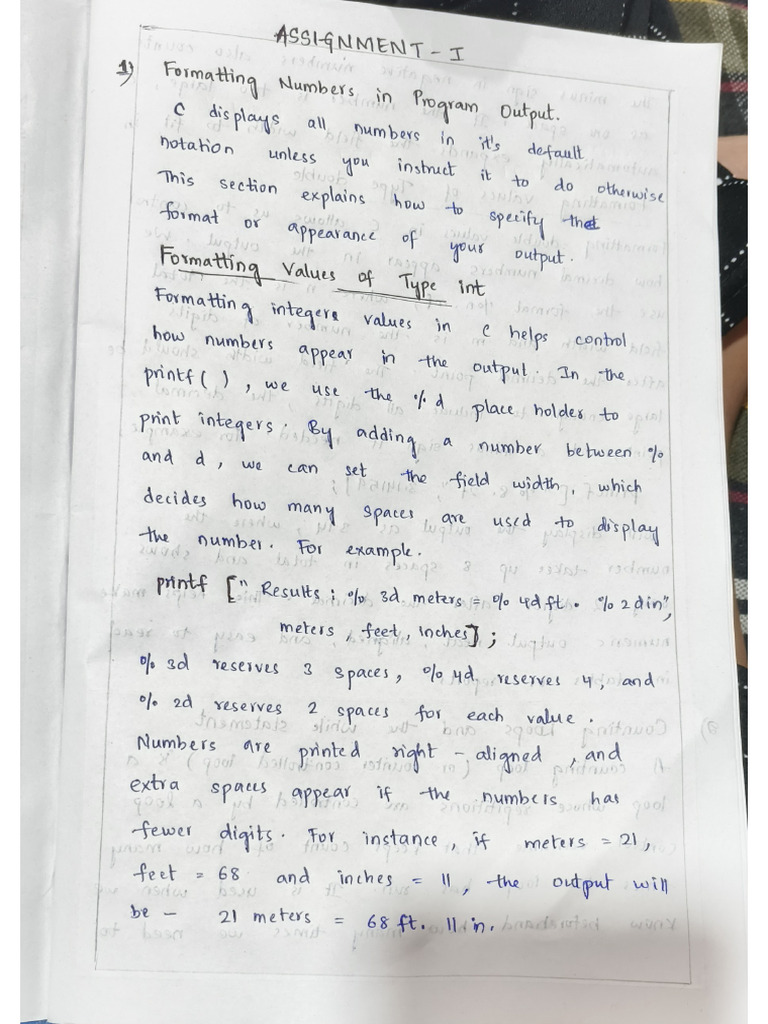 ASSIGNMENT - I
1) Formatting Numbers in Program Output.
C displays all numbers in it's default
notation unless you instruct it to do otherwise
This section explains how to specify the
format or appearance of your output.
Formatting Values of Type int
Formatting integers values in C helps control
how numbers appear in the output. In the
printf( ), we use the %d place holder to
print integers. By adding a number between %
and d, we can set the field width, which
decides how many spaces are used to display
the number. For example.
printf [" Results : % 3d meters = % 4d ft. % 2d in",
meters, feet, inches];
% 3d reserves 3 spaces, % 4d reserves 4, and
% 2d reserves 2 spaces for each value.
Numbers are printed right - aligned, and
extra spaces appear if the numbers has
fewer digits. For instance, if meters = 21,
feet = 68 and inches = 11, the output will
be - 21 meters = 68 ft. 11 in.